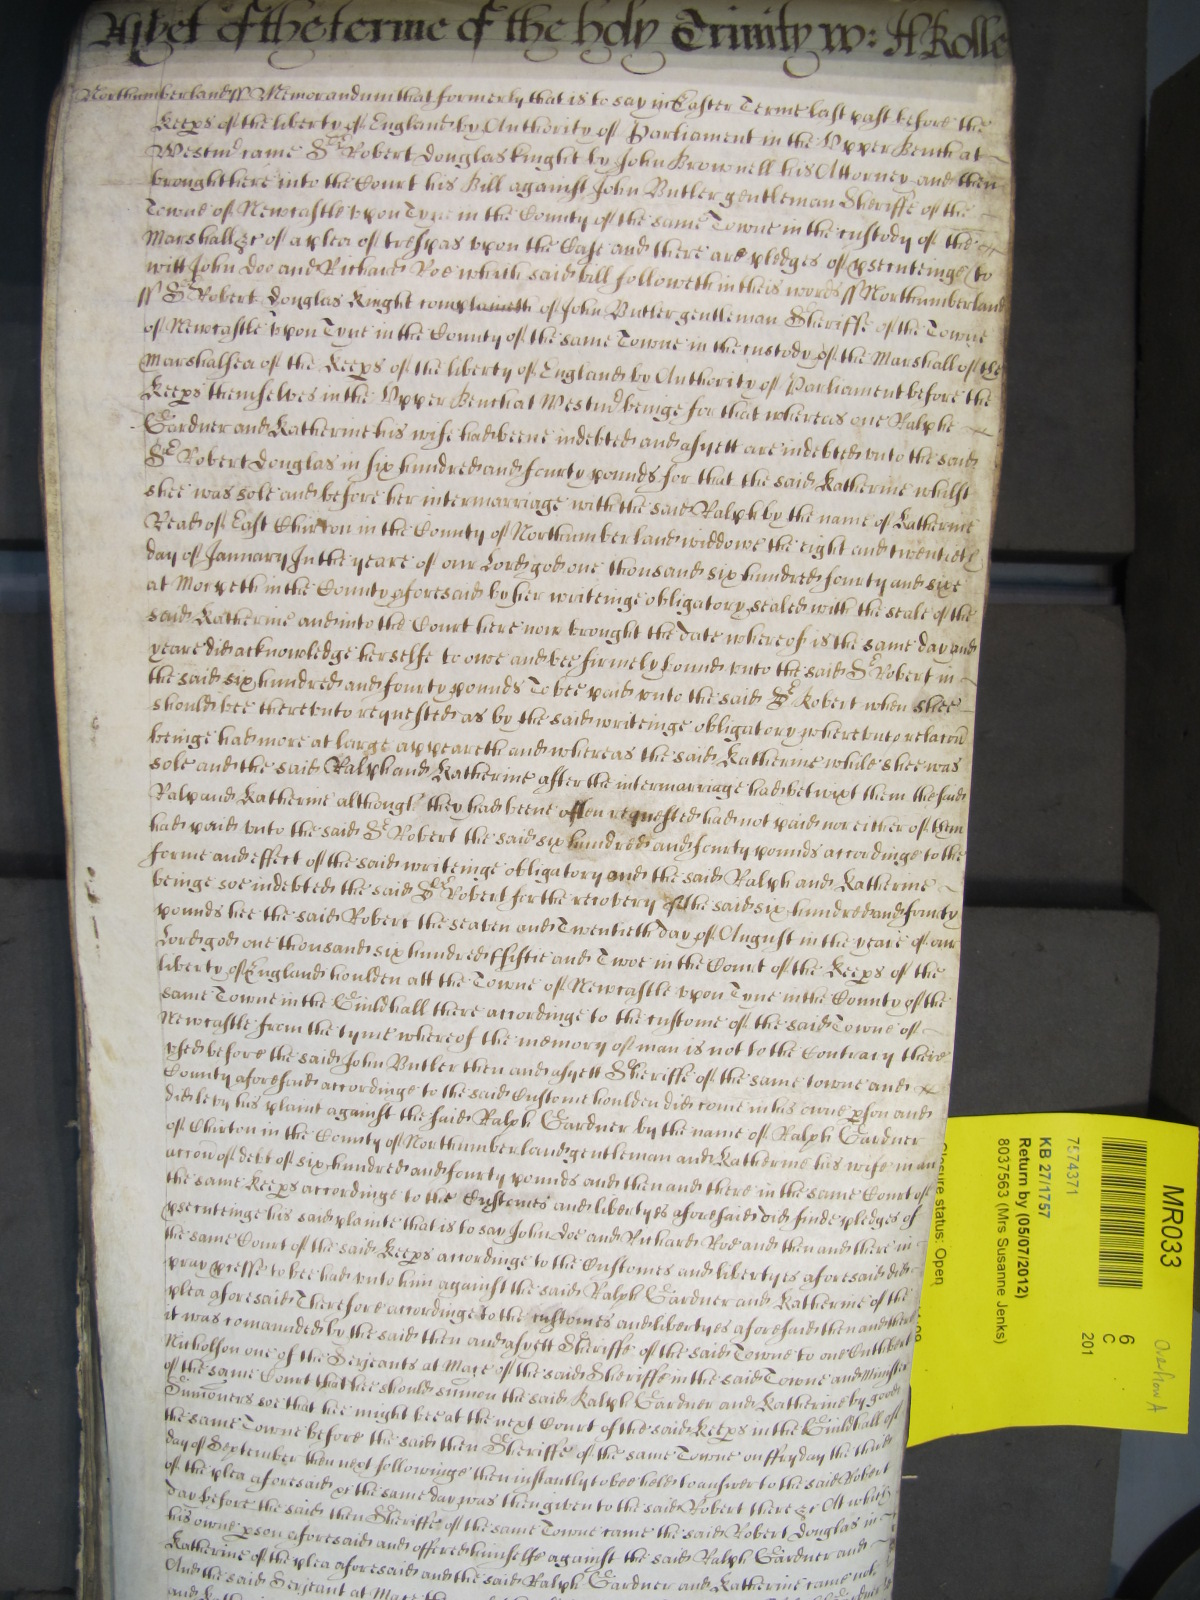 Yet of the terme of the holy Trinity w: H Rolle
Northumberland ss Memorandum that formerly that is to say in Easter Terme last past before the
Keeps of the liberty of England by Authority of Parliament in the Upper Bench at
Westmr came Sr Robert Douglas knight by John Brownell his Attorney and then
brought here into the Court his Bill against John Butler gentleman Sheriffe of the
Towne of Newcastle upon Tyne in the County of the same Towne in the custody of the
Marshall &c of a plea of trespas upon the Case and there are pledges of psecuteinge to
witt John Doo and Richard Roe which said bill followeth in theis words ss Northumberland
ss Sr Robert Douglas Knight complaineth of John Butler gentleman Sheriffe of the Towne
of Newcastle upon Tyne in the County of the same Towne in the custody of the Marshall of the
Marshalsea of the Keeps of the liberty of England by Authority of Parliament before the
Keeps themselves in the Upper Bench at Westmr beinge for that whereas one Ralphe
Gardner and Katherine his wife had beene indebted and as yett are indebted unto the said
Sr Robert Douglas in six hundred and fourty pounds for that the said Katherine whilst
shee was sole and before her intermarriage with the said Ralph by the name of Katherine
Reade of East Chirton in the County of Northumberland widdowe the eight and twentieth
day of January In the yeare of our Lord god one thousand six hundred fourty and sixe
at Morpeth in the County aforesaid by her writeinge obligatory sealed with the seale of the
said Katherine and into the Court here now brought the date whereof is the same day and
yeare did acknowledge herselfe to owe and bee firmely bound unto the said Sr Robert in
the said six hundred and fourty pounds To bee paid unto the said Sr Robert when shee
should bee thereunto requested as by the said writeinge obligatory whereunto relacon
beinge had more at large appeareth and whereas the said Katherine while shee was
sole and the said Ralph and Katherine after the intermarriage had betwixt them the said
Ralp and Katherine although they had beene often requested had not paid nor either of them
had paid unto the said Sr Robert the said six hundred and fourty pounds accordinge to the
forme and effect of the said writeinge obligatory and the said Ralph and Katherine
beinge soe indebted the said Sr Robert for the recovery of the said six hundred and fourty
pounds hee the said Robert the seaven and Twentieth day of August in the yeare of our
Lord god one thousand six hundred ffiftie and Twoe in the Court of the Keeps of the
liberty of England houlden att the Towne of Newcastle upon Tyne in the County of the
same Towne in the Guildhall there accordinge to the custome of the said Towne of
Newcastle from the tyme whereof the memory of man is not to the Contrary there
used before the said John Butler then and as yett Sheriffe of the same towne and
County aforesaid accordinge to the said Custome houlden did come in his owne pson and
did levy his plaint against the said Ralph Gardner by the name of Ralph Gardner
of Chirton in the County of Northumberland gentleman and Katherine his wife in an
accon of debt of six hundred and fourty pounds and then and there in the same Court of
the same Keeps accordinge to the Customes and libertyes aforesaid did finde pledges of
psecuteinge his said plainte that is to say John Doe and Richard Roe and then and there in
the same Court of the said Keeps accordinge to the Customes and libertyes aforesaid did
pray pcesse to bee had unto him against the said Ralph Gardner and Katherine of the
plea aforesaid Therefore accordinge to the customes and libertyes aforesaid then and there
it was comaunded by the said then and as yett Sheriffe of the said Towne to one Cuthbert
Nicholson one of the Serjeants at Mace of the said Sheriffe in the said Towne and Minister
of the same Court that hee should sumon the said Ralph Gardner and Katherine by good
Sumoners soe that hee might bee at the next Court of the said Keeps in the Guildhall of
the same Towne before the said then Sheriffe of the same Towne on ffryday the third
day of September then next followinge then instantly to bee held to answer to the said Robert
of the plea aforesaid the same day was then given to the said Robert there &c At which
day before the said then Sheriffe of the same Towne came the said Robert Douglas in
his owne pson aforesaid and offered himselfe against the said Ralph Gardner and
Katherine of the plea aforesaid and the said Ralph Gardner and Katherine came not
And the said Serjeant at Mace
MR033
6
C
201
Overflow A
7574371
KB 27/1757
Return by (05/07/2012)
8037563 (Mrs Susanne Jenks)
Closure status: Open